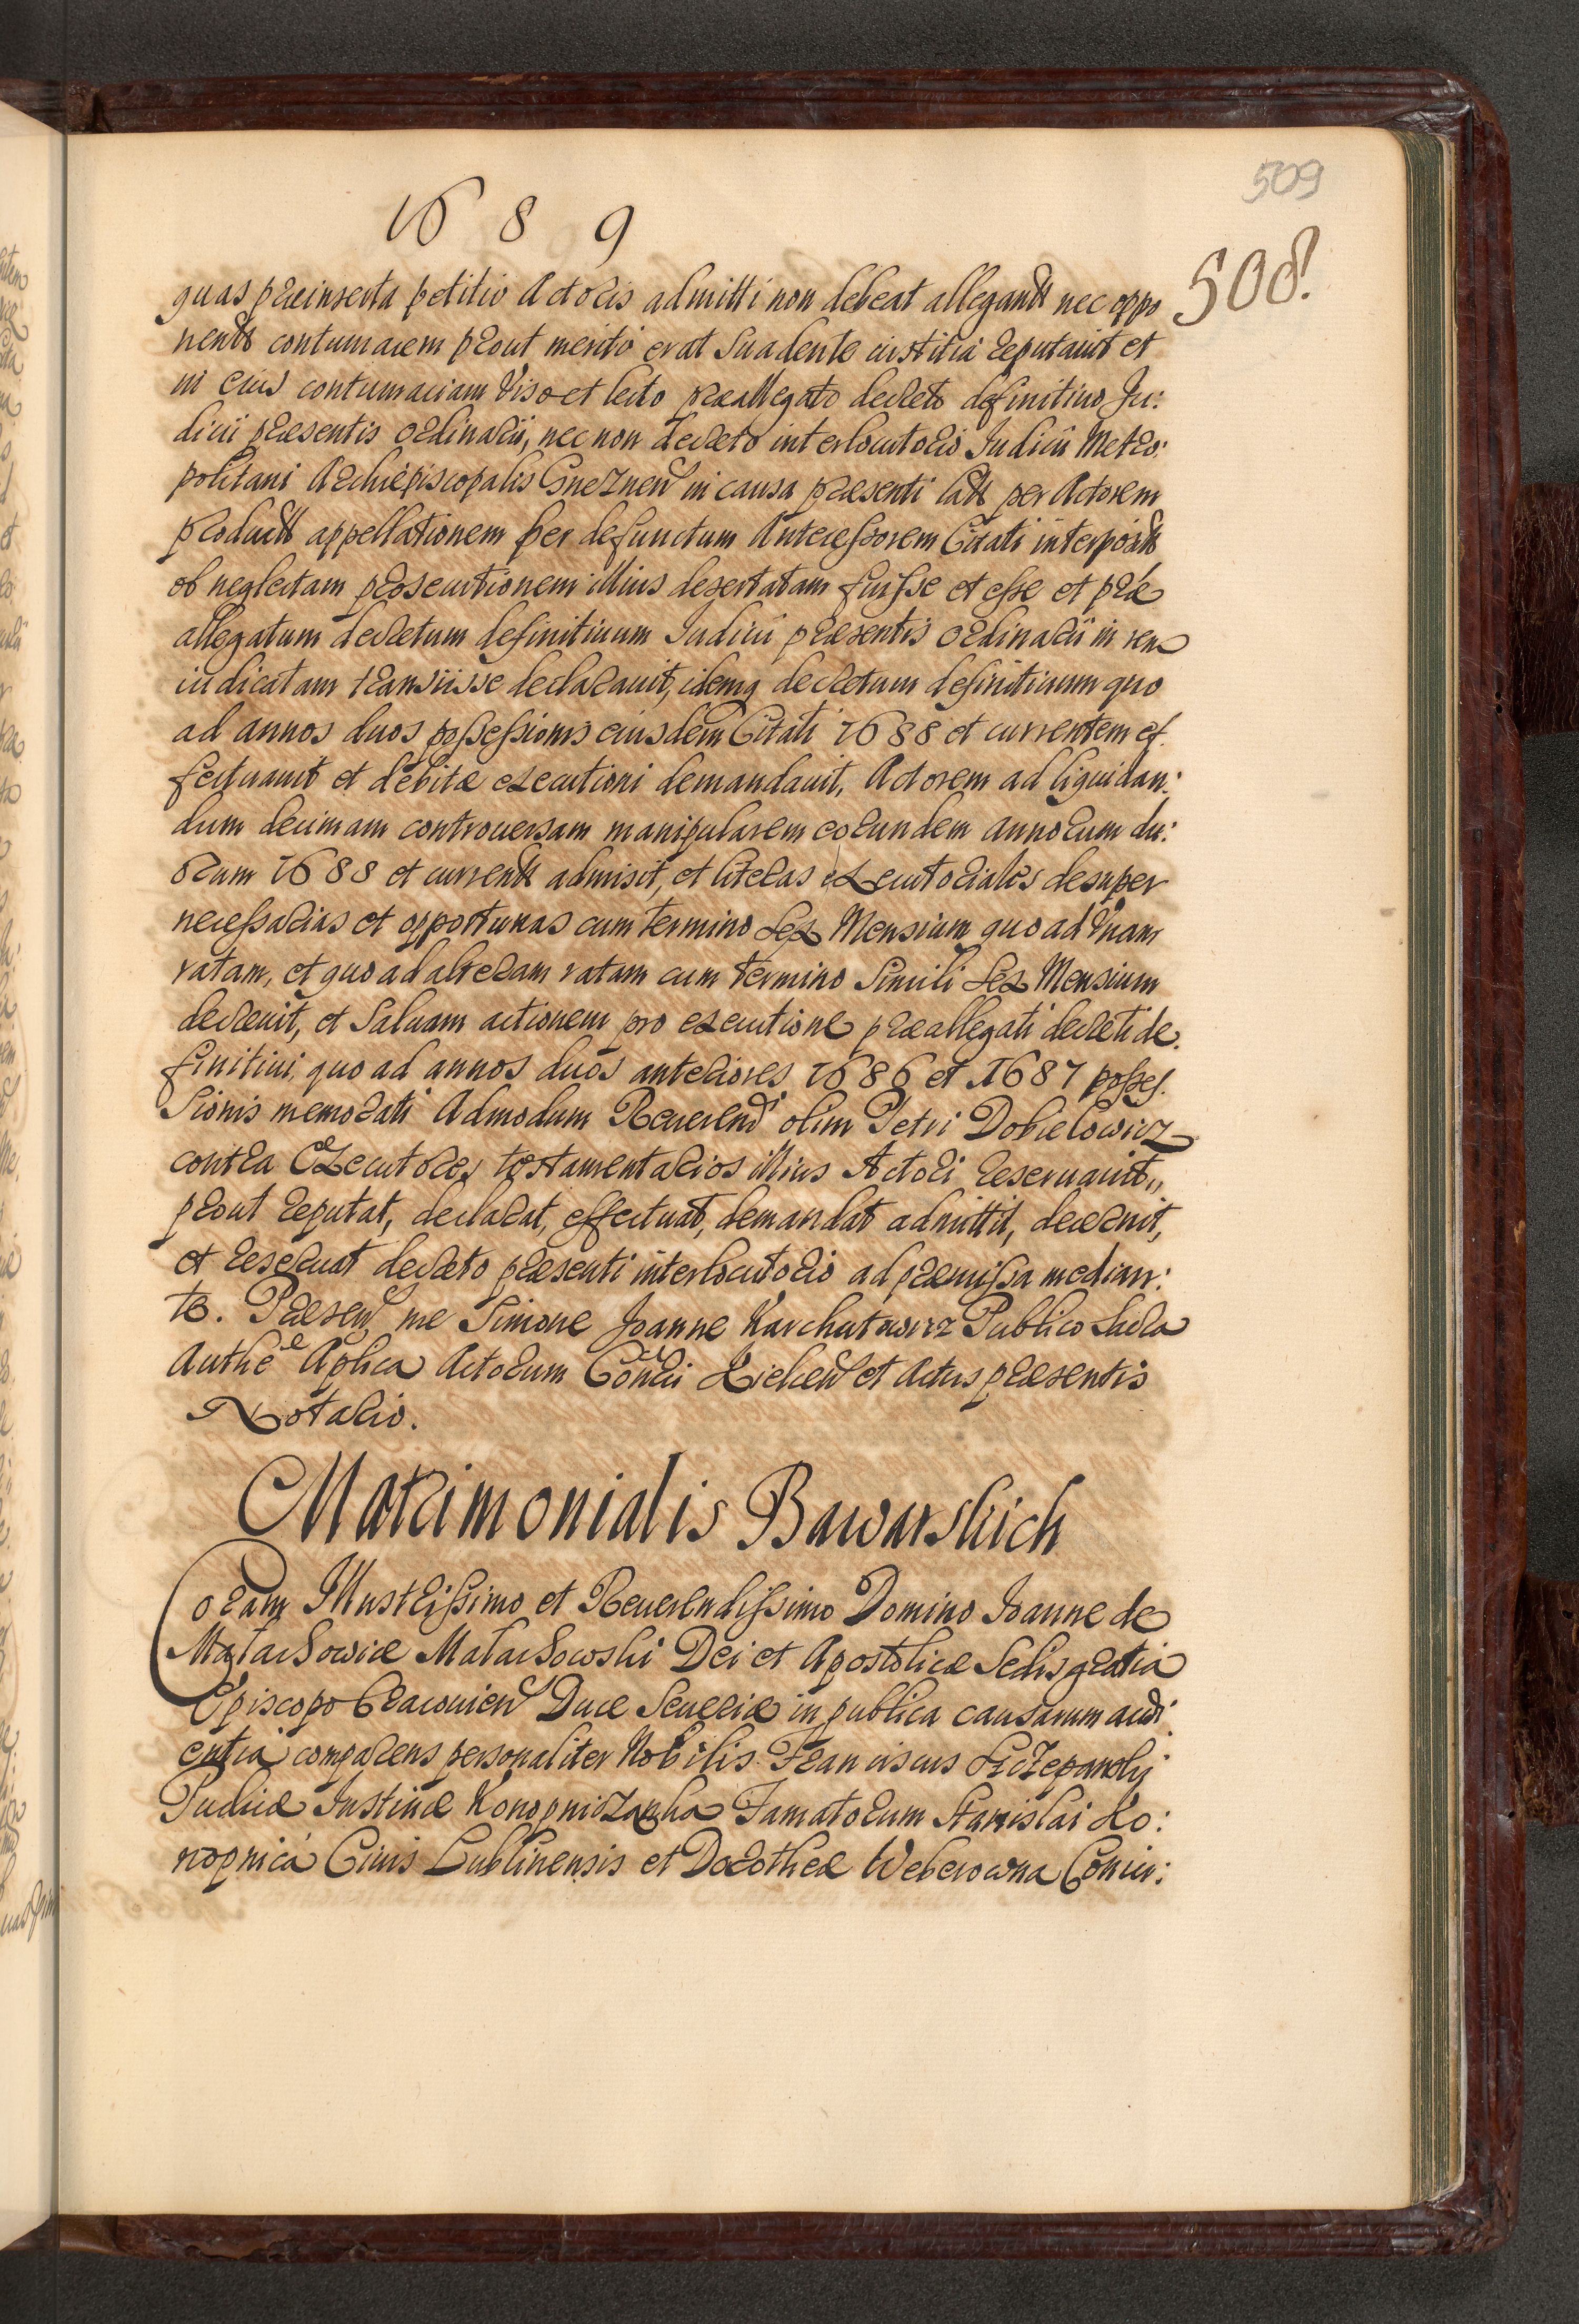 509
1689
508.
quas præinserta petitio Actoris admitti non debeat allegant nec oppo
nent contumacem prout merito erat Suadente iustitia reputauit et
in eius contumaciam Viso et lecto præallegato decreto definitiuo Ju:
dicii præsentis ordinarii, nec non decreto interlocutorio Iudicii Metro:
politani Archiepiscopalis Gneznen in causa præsenti lat per Actorem
product appellationem per defunctum Antecessorem Citati interposit
ob neglectam prosecutionem illius desertatam fuisse et esse et præ
allegatum decretum definitiuum Iudicii præsentis ordinarii in rem
iudicatam transiisse declarauit, idemq decretum definitiuum quo
ad annos duos possessionis eiusdem Citati 1688 et currentem ef.
fectuauit et debitæ executioni demandauit, Actorem ad liquidan:
dum decimam controuersam manipularem eorundem annorum du:
orum 1688 et current admisit, et literas executoriales desuper
necessarias et opportunas cum termino Sex Mensium quo ad Vnam
ratam, et quo ad alteram ratam cum termino Simili Sex Mensium
decreuit, et Saluam actionem pro executione præallegati decreti de.
finitiui, quo ad annos duos anteriores 1686 et 1687 posses.
Sionis memorati Admodum Reuerend olim Petri Dobielowicz
contra Executores testamentarios illius Actori reseruauit,,
prout reputat, declarat, effectuat, demandat admittit, decernit,
et reseruat decreto præsenti interlocutorio ad præmissa median:
te. Præsen me Simone Joanne Karchutowicz Publico Sacra
Authe Aplica Actorum Conrii Kielcen et Actus præsentis
Notario.
Matrimonialis Bawarskich
Coram Illustrissimo et Reuerendissimo Domino Ioanne de
Małachowice Małachowski Dei et Apostolicæ Sedis gratia
Episcopo Cracouien Duce Seueriæ in publica causarum audi
entia comparens personaliter Nobilis Franciscus Szczepanoly
Pudicæ Iustinæ Konopniczanka Famatorum Stanislai Ko:
nopnica Ciuis Lublinensis et Dorotheæ Weberowna Coniu: